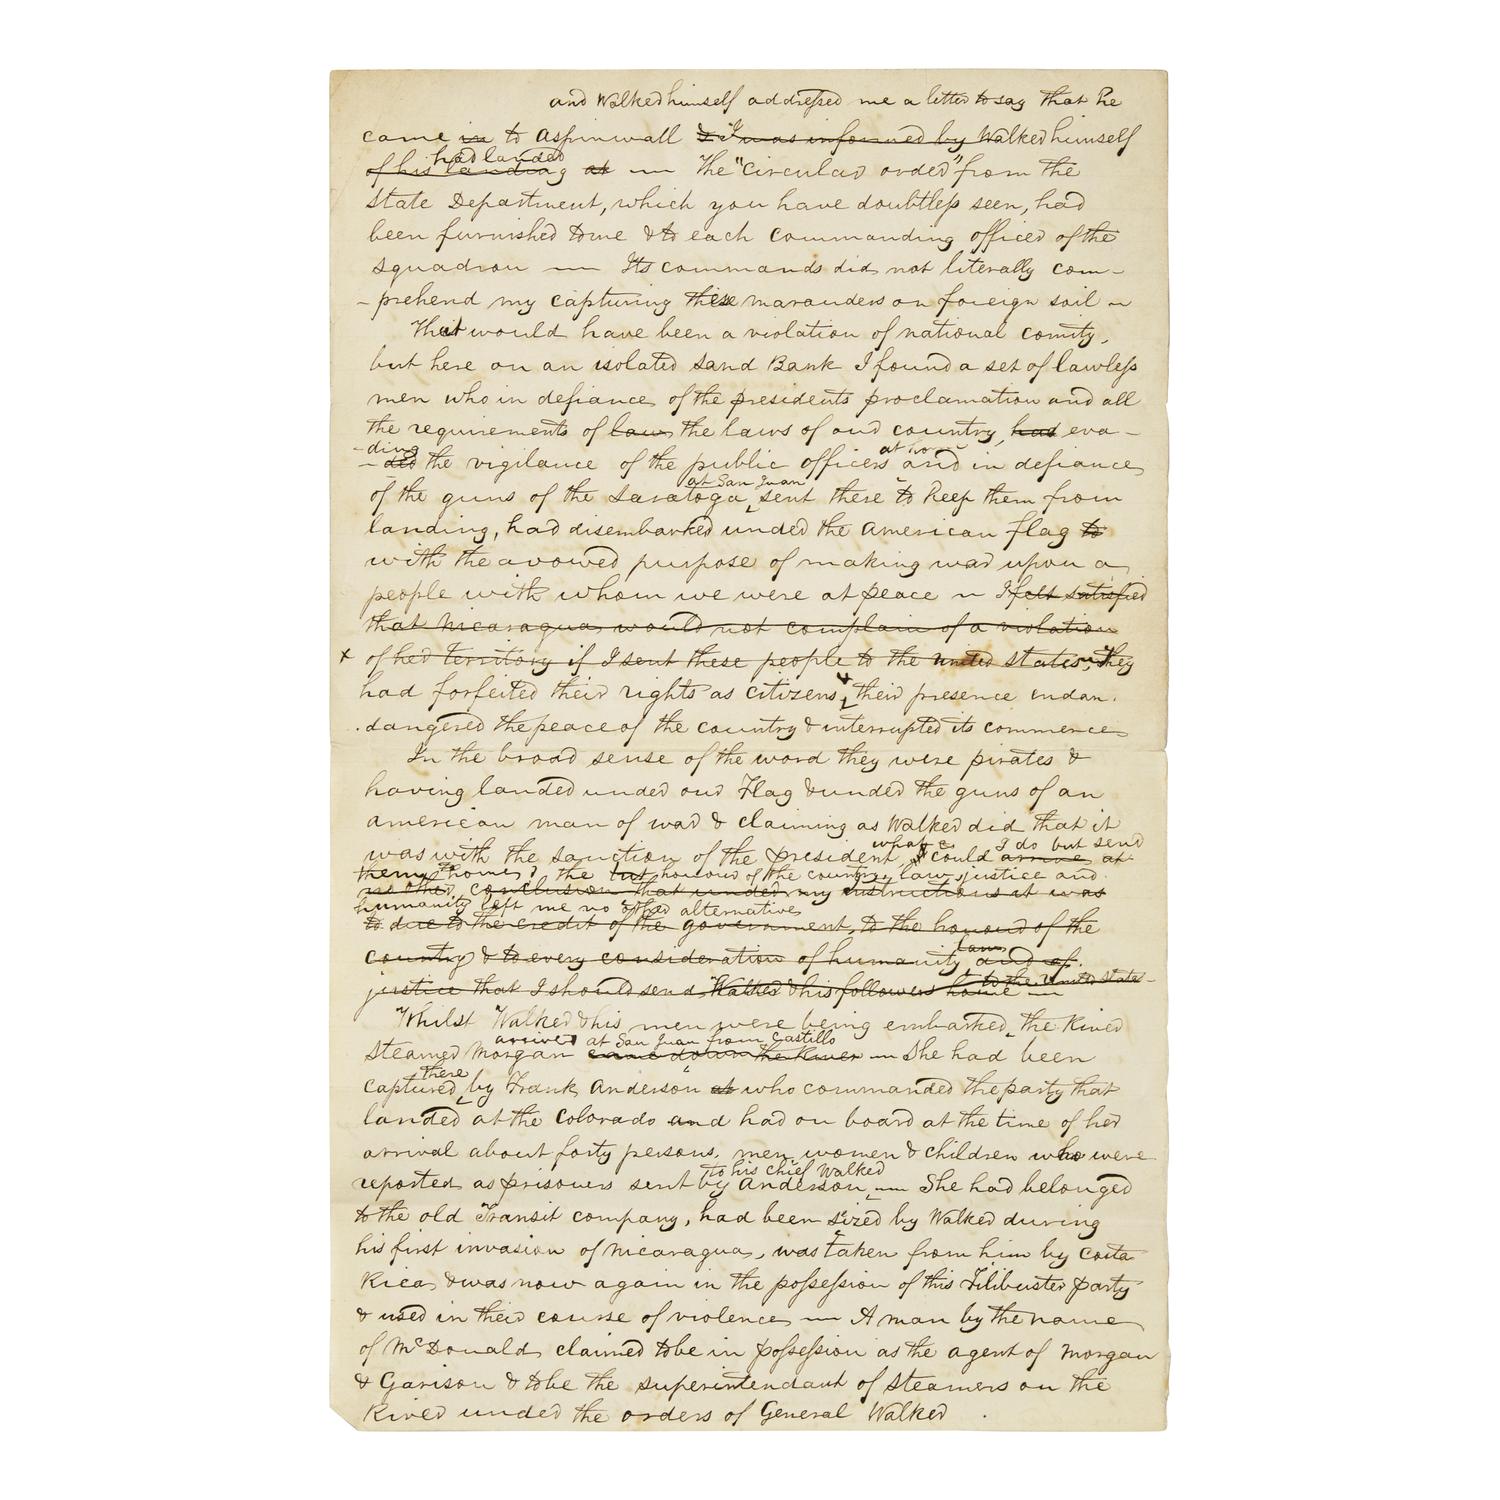 and Walker himself addressed me a letter to say that he
came in to Aspinwall & I was informed by Walker himself
had landed
of his landing at — The "circular order" from the
State Department, which you have doubtless seen, had
been furnished to me & to each commanding officer of the
squadron — Its commands did not literally com-
-prehend my capturing these marauders on foreign soil —
That would have been a violation of national comity,
but here on an isolated sand Bank I found a set of lawless
men who in defiance of the presidents proclamation and all
the requirements of law the laws of our country, had eva-
-ding at home
-ded the vigilance of the public officers and in defiance
at San Juan
of the guns of the Saratoga, sent there to keep them from
landing, had disembarked under the American flag to
with the avowed purpose of making war upon a
people with whom we were at peace — I felt satisfied
that Nicaragua would not complain of a violation
x of her territory if I sent these people to the United States, They
had forfeited their rights as citizens, their presence endan.
.dangered the peace of the country & interrupted its commerce
In the broad sense of the word they were pirates &
having landed under our Flag & under the guns of an
American man of war & claiming as Walker did that it
what I do but send
was with the sanction of the President I could arrive at
them home? the honour of the country, law, justice and
no other conclusion that under my instructions it was
humanity left me no other alternative
to due to the credit of the government, to the honour of the
law
country & to every consideration of humanity and of
to the United States
justice that I should send Walker & his followers home —
Whilst Walker & his men were being embarked, the River
arrived at San Juan from Castillo
steamer Morgan came down the River — She had been
there
captured, by Frank Anderson at who commanded the party that
landed at the Colorado and had on board at the time of her
arrival about forty persons, men women & children who were
to his chief Walker
reported as prisoners sent by Anderson, — She had belonged
to the old Transit company, had been sized by Walker during
his first invasion of Nicaragua, was taken from him by Costa
Rica & was now again in the possession of this Filibuster party
& used in their course of violence — A man by the name
of McDonald claimed to be in possession as the agent of Morgan
& Garison & to be the superintendant of steamers on the
River under the orders of General Walker.